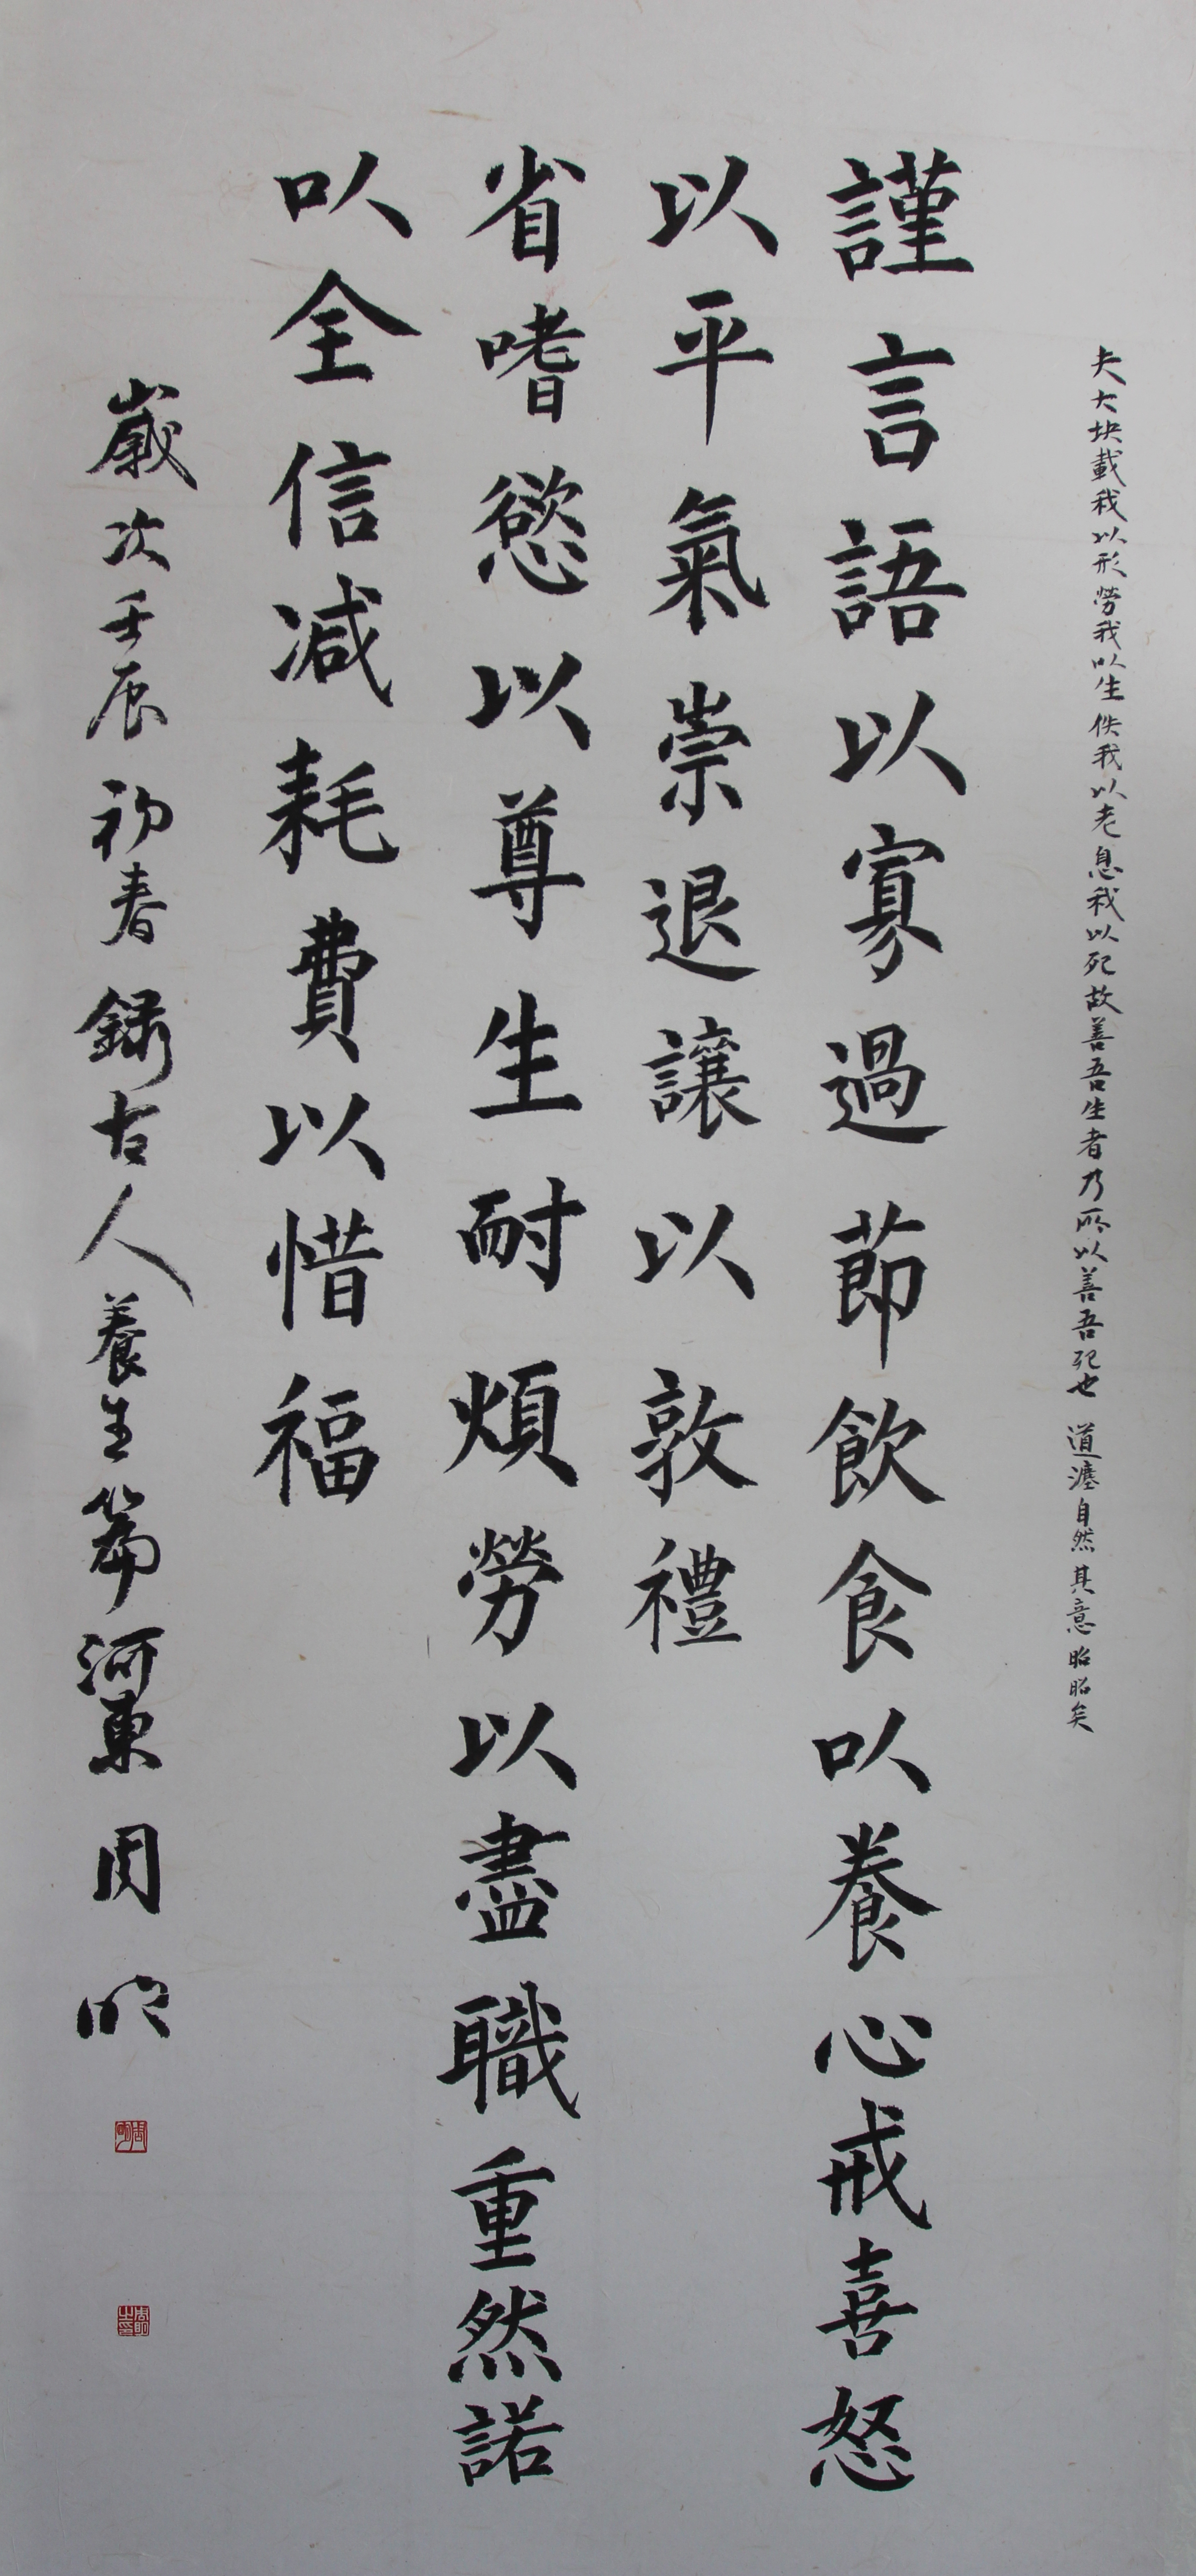 夫大块載我以形勞我以生佚我以老息我以死故善吾生者乃所以善吾死也道灋自然其意昭昭矣
謹言語以寡過節飲食以養心戒喜怒
以平氣崇退讓以敦禮
省嗜慾以尊生耐煩勞以盡職重然諾
以全信减耗費以惜福
歲次壬辰初春錄古人養生篇河東周明